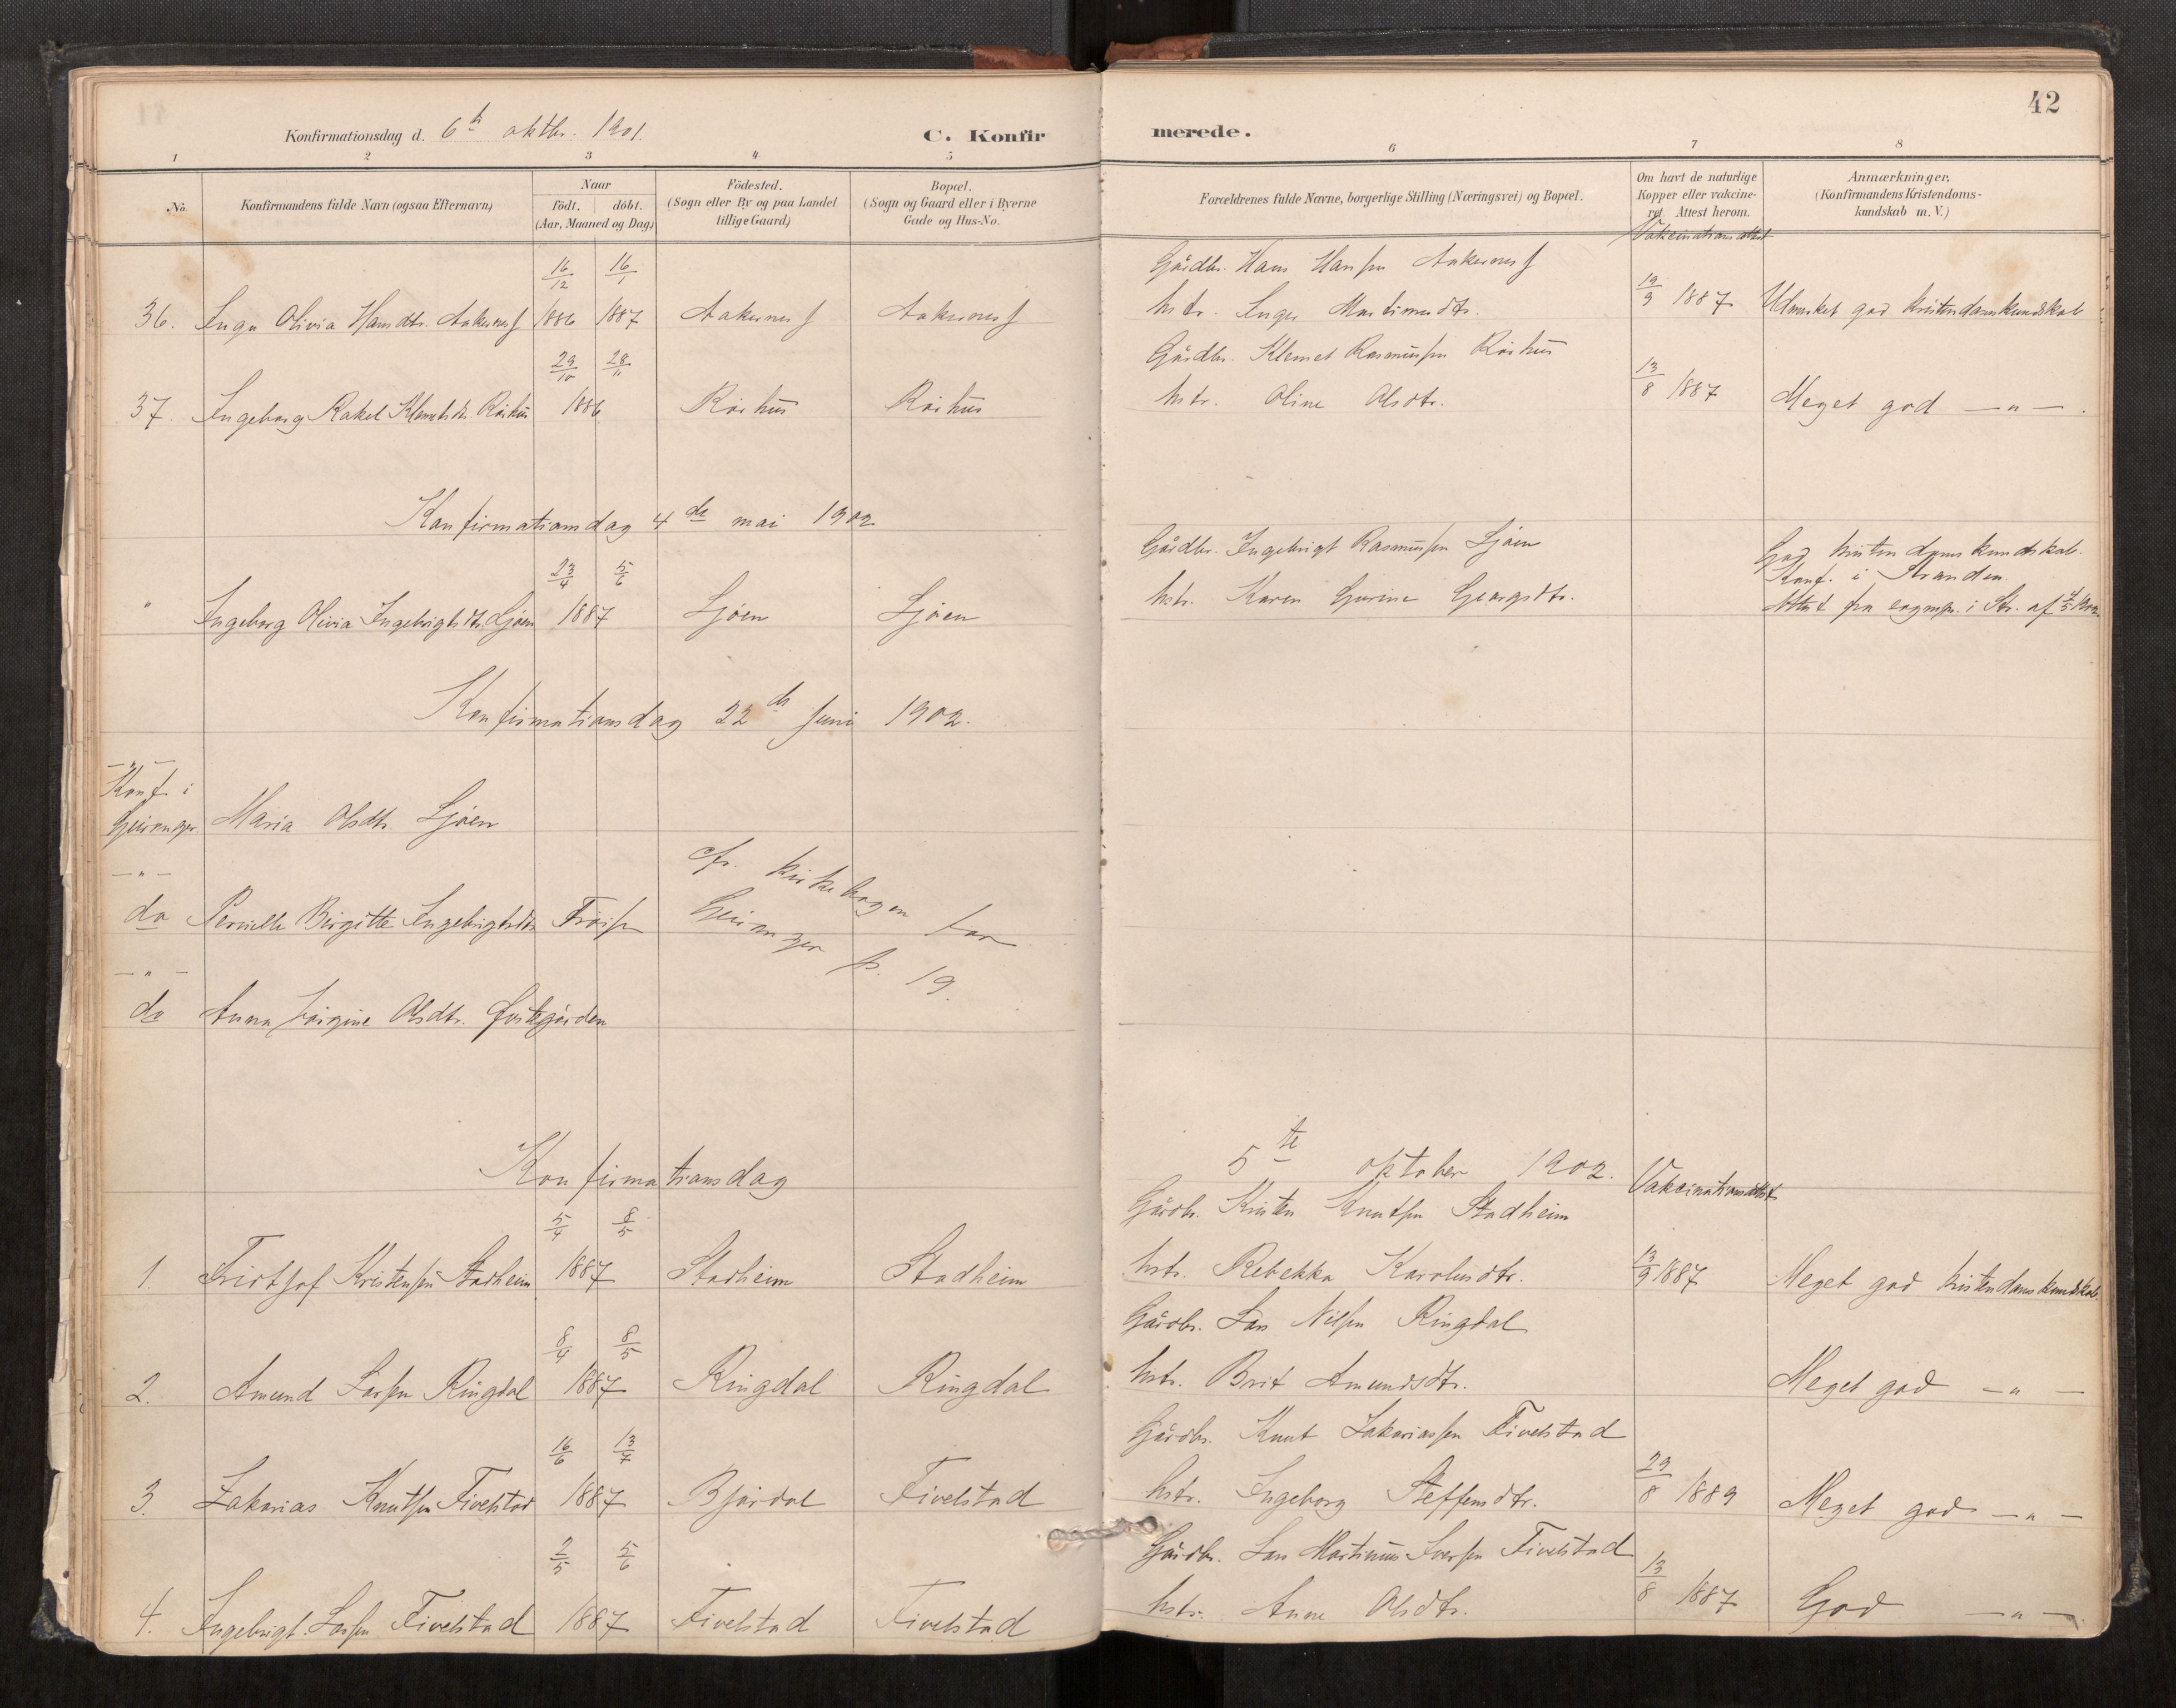 42
Konfirmationsdag d. 6te oktbr. 1901.
C. Konfirmerede.
1 2 3 4 5 6 7 8
No.
Konfirmandens fulde Navn (ogsaa Efternavn)
Naar
födt. döbt.
(Aar, Maaned og Dag)
Födested.
(Sogn eller By og paa Landet
tillige Gaard)
Bopæl.
(Sogn og Gaard eller i Byerne
Gade og Hus-No.
Forældrenes fulde Navne, borgerlige Stilling (Næringsvei) og Bopæl.
Om havt de naturlige
Kopper eller vakcine-
ret. Attest herom.
Anmærkninger,
(Konfirmandens Kristendoms-
kundskab m. V.)
Vakcinationsattest
16/12 16/1 Gårdbr. Hans Hansen Aakernes
36. Inga Olivia Hansdtr. Aakernes 1886 1887 Aakernes Aakernes hstr. Inger Martinusdtr. 19/9 1887 Udmerket god kristendomskundskab
29/10 28/11 Gårdbr. Klemet Rasmussen Röshus
37. Ingeborg Rakel Klemetsdtr. Röshus 1886 Röshus Röshus hstr. Oline Olsdtr. 13/8 1887 Meget god — " —.
Konfirmationsdag 4de mai 1902
23/4 5/6 Gårdbr. Ingebrigt Rasmussen Ljöen God kristendomskundskab.
Konf. i Stranden.
" Ingeborg Olivia Ingebrigtsdtr. Ljöen 1887 Ljöen Ljöen hstr. Karen Gurine Georgsdtr. Attest fra sognepr. i Str. af
Konfirmationsdag 22de juni 1902.
— " —
Konf. i
Geiranger Maria Olsdtr. Ljöen
— " —
do Pernille Birgitte Ingebrigtsdtr. Fröisa
cfr. kirkebogen for
Geiranger p. 19.
— " —
do Anna Jörgine Olsdtr. Östigården
Konfirmationsdag 5te oktober 1902. Vakcinationsattest
5/4 8/5 Gårdbr. Kristen Knutsen Stadheim
1. Fridthjof Kristensen Stadheim 1887 Stadheim Stadheim hstr. Rebekka Karolusdtr. 13/9 1887 Meget god kristendomskundskab.
8/4 8/5 Gårdbr. Lars Nilsen Ringdal
2. Amund Larsen Ringdal 1887 Ringdal Ringdal hstr. Brit Amundsdtr. Meget god — " —
16/6 13/7 Gårdbr. Knut Zakariassen Fivelstad
3. Zakarias Knutsen Fivelstad 1887 Björdal Fivelstad hstr. Ingeborg Steffensdtr. 29/8 1889 Meget god — " —
2/5 5/6 Gårdbr. Lars Martinus Iversen Fivelstad
4. Ingebrigt Larsen Fivelstad 1887 Fivelstad Fivelstad hstr. Anne Olsdtr. 13/8 1887 God — " —